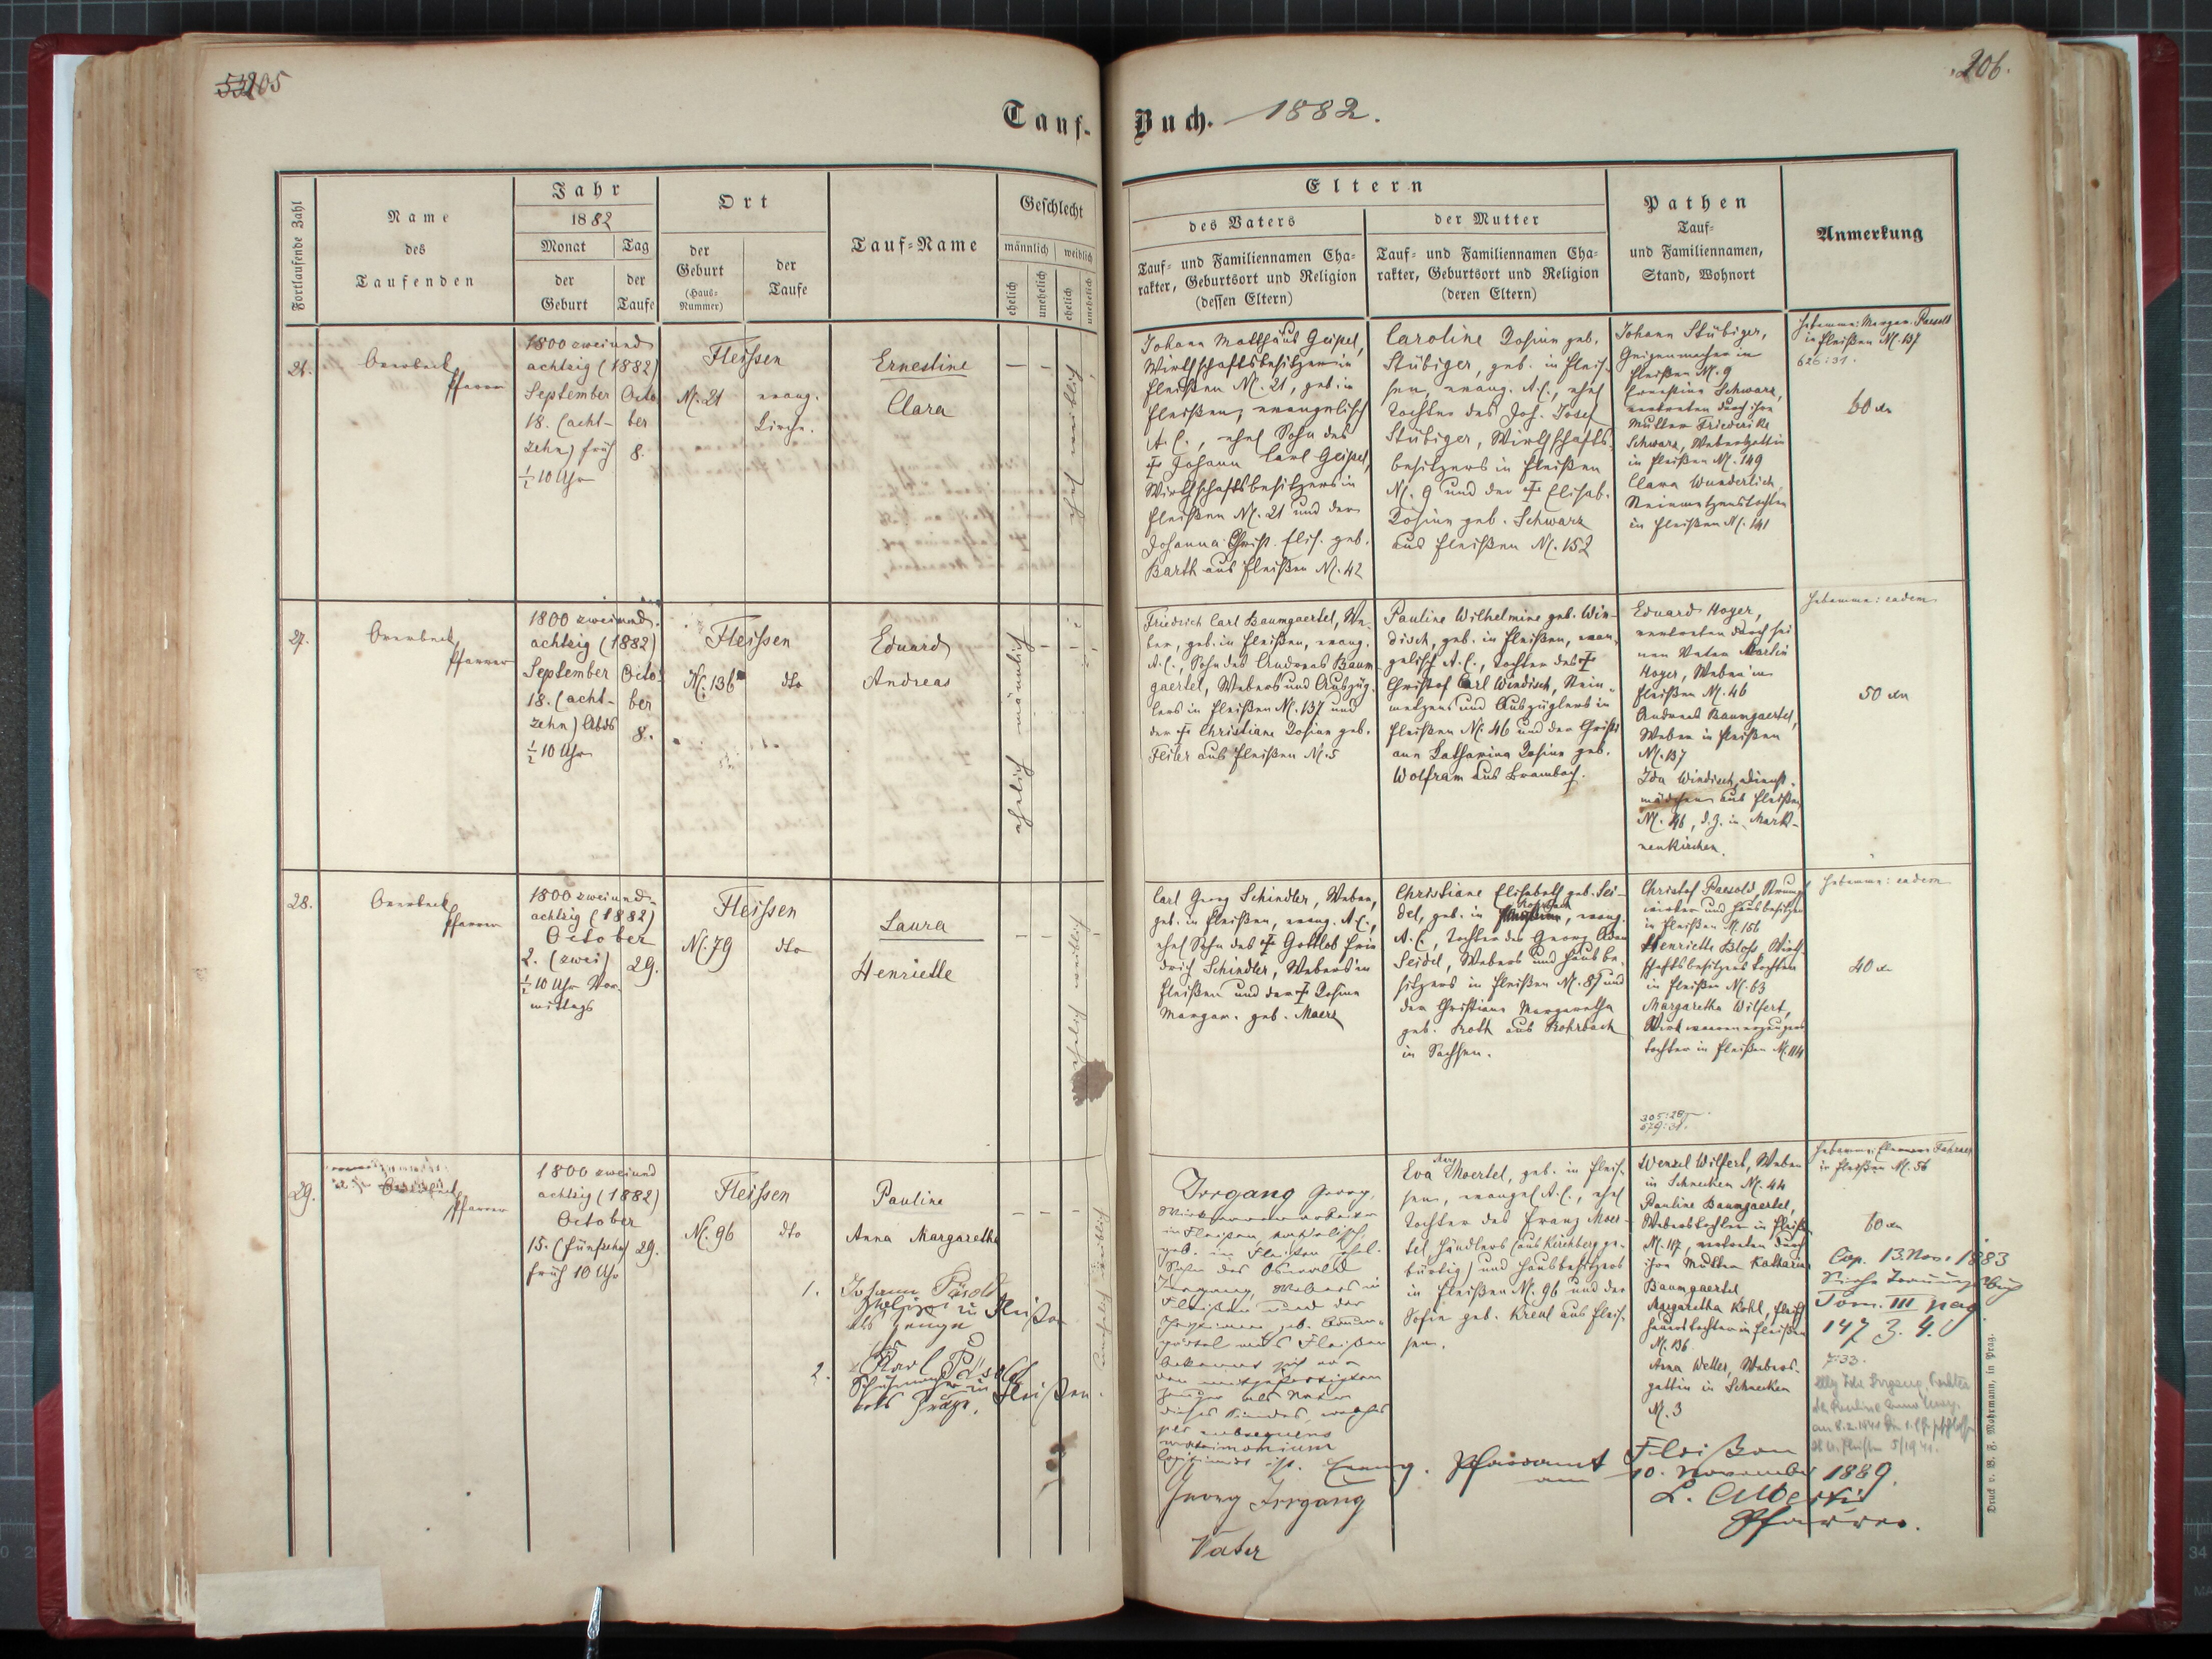 205
206.
Tauf-
Buch. 1882.
Fortlaufende Zahl
Name
des
Taufenden
Jahr
1882
Monat
Tag
der
Geburt
der
Taufe
Ort
der
Geburt
(Haus-
Nummer)
der
Taufe
Tauf-Name
Geschlecht
männlich
weiblich
ehelich
unehelich
ehelich
unehelich
Eltern
des Vaters
Tauf- und Familiennamen Cha-
rakter, Geburtsort und Religion
(dessen Eltern)
der Mutter
Tauf- und Familiennamen Cha-
rakter, Geburtsort und Religion
(deren Eltern)
Pathen
Tauf-
und Familiennamen,
Stand, Wohnort
Anmerkung
Overbeck
Pfarrer
1800 zweiund
achtzig (1882)
September
18. (acht-
zehn) früh
½ 10 Uhr
Octo
ber
8.
Fleissen
N. 21
evang.
Kirche.
Ernestine
Clara
ehel weiblich
Johann Matthäus Geipel,
Wirthschaftsbesitzer in
Fleißen N. 21, geb. in
Fleißen, evangelisch
A.C., ehel Sohn des
† Johann Carl Geipel,
Wirthschaftsbesitzers in
Fleißen N. 21 und der
Johanna Christ. Elis. geb.
Barth aus Fleißen N. 42
Caroline Rosine geb.
Stübiger, geb. in Fleis-
sen, evang. A.C., ehel
Tochter des Joh. Josef
Stübiger, Wirthschafts-
besitzers in Fleißen
N. 9 und der † Elisab.
Rosine geb. Schwarz
aus Fleißen N. 152
Johann Stübiger,
Geigenmacher in
Fleißen N. 9
Ernestine Schwarz,
vertreten durch ihre
Mutter Friederike
Schwarz, Webersgattin
in Fleißen N. 149
Clara Wunderlich,
Steinmetzenstochter
in Fleißen N. 141
Hebamme: Margar. Paesold
in Fleißen N. 137
626:31.
60 xr
27.
Overbeck
Pfarrer
1800 zweiund-
achtzig (1882)
September
18. (acht-
zehn) Abds
½ 10 Uhr
Octo
ber
8.
Fleissen
N. 136
dto
Eduard
Andreas
ehelich männlich
Friedrich Carl Baumgaertel, We-
ber, geb. in Fleißen, evang.
A.C., Sohn des Andreas Baum-
gaertel, Webers und Auszüg-
lers in Fleißen N. 137 und
der † Christiane Rosine geb.
Feiler aus Fleißen N. 5
Pauline Wilhelmine geb. Win-
disch, geb. in Fleißen, evan-
gelisch A.C., Tochter des †
Christof Carl Windisch, Stein-
metzens und Auszüglers in
Fleißen N. 46 und der Christi
ane Katharina Rosine geb.
Wolfram aus Brambach.
Eduard Hoyer,
vertreten durch sei
nen Vater Martin
Hoyer, Weber in
Fleißen N. 46
Andreas Baumgaertel,
Weber in Fleißen
N. 137
Ida Windisch, Dienst-
mädchen aus Fleißen
N. 46, d.Z. in Mark-
neukirchen.
Hebamme: eadem
50 xr
28.
Overbeck
Pfarrer
1800 zweiund-
achtzig (1882)
October
2. (zwei)
½ 10 Uhr Vor-
mittags
29.
Fleissen
N. 79
dto
Laura
Henriette
ehelich weiblich
Carl Georg Schindler, Weber,
geb. in Fleißen, evang. A.C.,
ehel Sohn des † Gottlob Frie
drich Schindler, Webers in
Fleißen und der † Rosine
Margar. geb. Maerz
Christiane Elisabeth geb. Sei-
del, geb. in Rohrbach, evang.
A.C., Tochter des Georg Adam
Seidel, Webers und Hausbe-
sitzers in Fleißen N. 87 und
der Christiane Margaretha
geb. Roth aus Rohrbach
in Sachsen.
Christof Paesold, Strumpf
wirker und Hausbesitzer
in Fleißen N. 156
Henriette Bloss, Wirth-
schaftsbesitzers Tochter
in Fleißen N. 63
Margaretha Wilfert,
Wirkwaarenerzeugers
tochter in Fleißen N. 114
305:28
679:31.
Hebamme: eadem
40 xr
29.
Overbeck
Pfarrer
1800 zweiund
achtzig (1882)
October
15. (fünfzehn)
früh 10 Uhr
29.
Fleissen
N. 96
dto
Pauline
Anna Margaretha
1. Johann Päsold
in Fleißen
als Zeuge
2. Karl Päsold
Schuhmacher in Fleißen
als Zeuge.
unehelich weiblich
Irrgang Georg,
in Fleißen, katholisch,
geb. in Fleißen, ehel.
Sohn des Oswald
Irrgang, Webers in
Fleißen und der
geb. Baum-
gärtel aus Fleißen
bekennt sich vor
den mitgefertigten
Zeugen als Vater
dieses Kindes, welches
per subsequens
matrimonium
legitimirt ist.
Georg Irrgang
Vater
Eva Marg Moertel, geb. in Fleis-
sen, evangel A.C., ehel
Tochter des Franz Moer-
tel, Händlers (aus Kirchberg ge-
bürtig) und Hausbesitzers
in Fleißen N. 96 und der
Sofie geb. Kreul aus Fleis-
sen.
Wenzel Wilfert, Weber
in Schnecken N. 44
Pauline Baumgaertel,
Weberstochter in Fleißen
N. 117, vertreten durch
ihre Mutter Katharina
Baumgaertel
Margaretha Kohl, Fleisch
hauerstochter in Fleißen
N. 136.
Anna Weller, Webers-
gattin in Schnecken
N. 3
Hebamme: Eleonore Fahrner
in Fleißen N. 56
60 xr
Cop. 13. Nov. 1883
Siehe Trauungsbuch
Tom. III pag.
147 Z. 4.
7:33.
Evang. Pfarramt Fleißen
am 10. November 1889.
L. Alberti
Pfarrer.
Druck v. B. E. Mohrmann, in Prag.